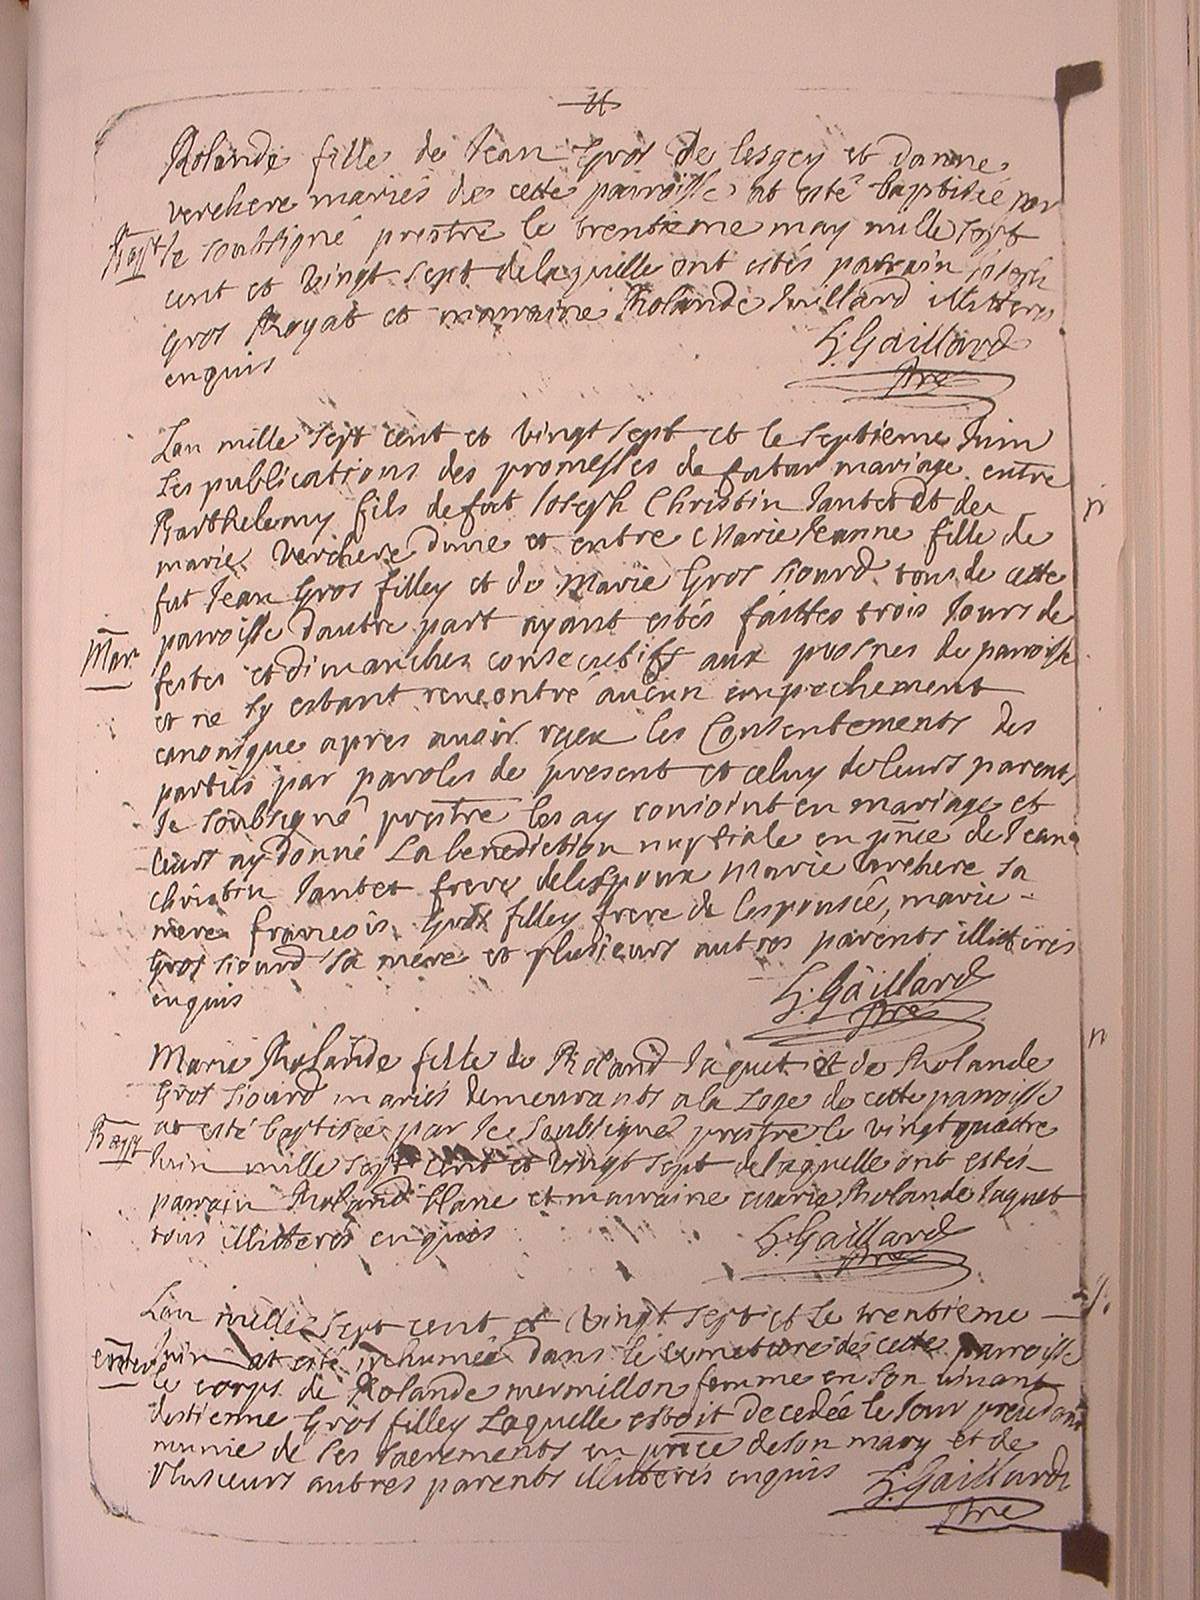 Rolande fille de Jean Gros de lesgey et danne
verchere mariés de cette parroisse at esté baptisée par
Bapt Je soubsigné prestre le trentieme may mille sept
cent et vingt sept delaquelle ont estés parrain Joseph
Gros Royat et marraine Rolande Juillard illitteres
enquis
G: Gaillard
pre
Lan mille sept cent et vingt sept et le septieme Juin
Les publications des promesses de futur mariage entre
Barthelemy fils de fut Joseph Christin Jantet et de
marie Verchere dune et entre Marie Jeanne fille de
fut Jean Gros filley et de Marie Gros siourd tous de cette
parroisse dautre part ayant estés faittes trois Jours de
Mar.
festes et dimanches consecutifs aux prosnes de parroisse
et ne sy estant rencontré aucun empechement
canonique apres avoir reçeu les Consentements des
parties par paroles de present et celuy de leurs parents
Je soubsigné prestre les ay conioint en mariage et
leurs ay donné La benediction nuptiale en pnce de Jean
christin Jantet frere delespoux Marie verchere sa
mere francois Gros filley frere de lespousée, marie
Gros siourd sa mere et plusieurs autres parents illitterés
enquis
G: Gaillard
pre
Marie Rolande fille de Roland Jaquet et de Rolande
Gros siourd mariés demeurants a la Loge de cette parroisse
Bapt at esté baptisée par Je soubsigné prestre le vingt quattre
Juin mille sept cent et vingt sept delaquelle ont estés
parrain Roland blanc et marraine marie Rolande Jaquet
tous illitterés enquis
G: Gaillard
pre
Lan mille sept cent et vingt sept et le trentieme
Juin at esté inhumée dans le cemetiere de cette parroisse
le corps de Rolande mermillon femme en son vivant
destienne Gros filley Laquelle estoit decedée le Jour precedant
munie de ses sacrements en prnce de son mary et de
plusieurs autres parents illitterés enquis
G: Gaillard
pre